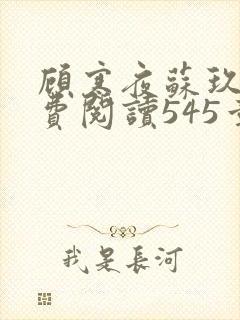 顧寒夜蘇玖
費閱讀545章
我是長河